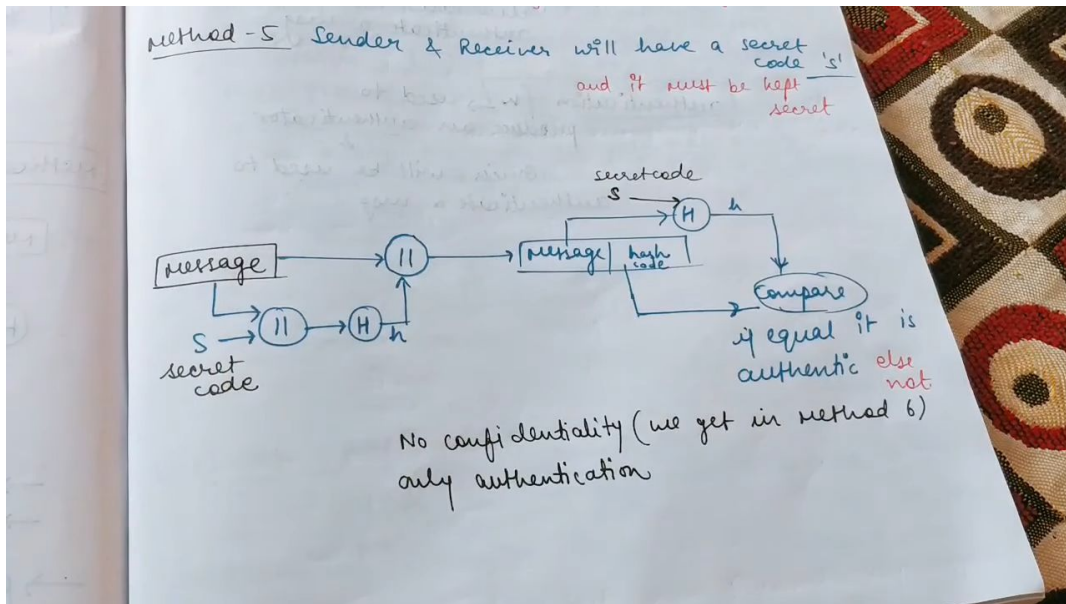 Method-5 Sender & Receiver will have a secret
code 's'
and it must be kept
secret
secret code
S
H
h
Message
||
Message
hash
code
Compare
S
||
H
h
secret
code
if equal it is
authentic else
not
No confidentiality (we get in Method 6)
only authentication